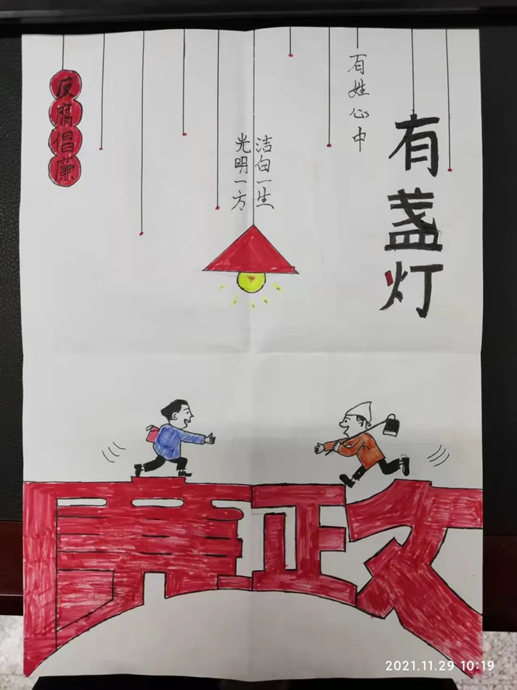 反腐倡廉
百姓心中
有盏灯
洁白一生
光明一方
廉政
2021.11.29 10:19